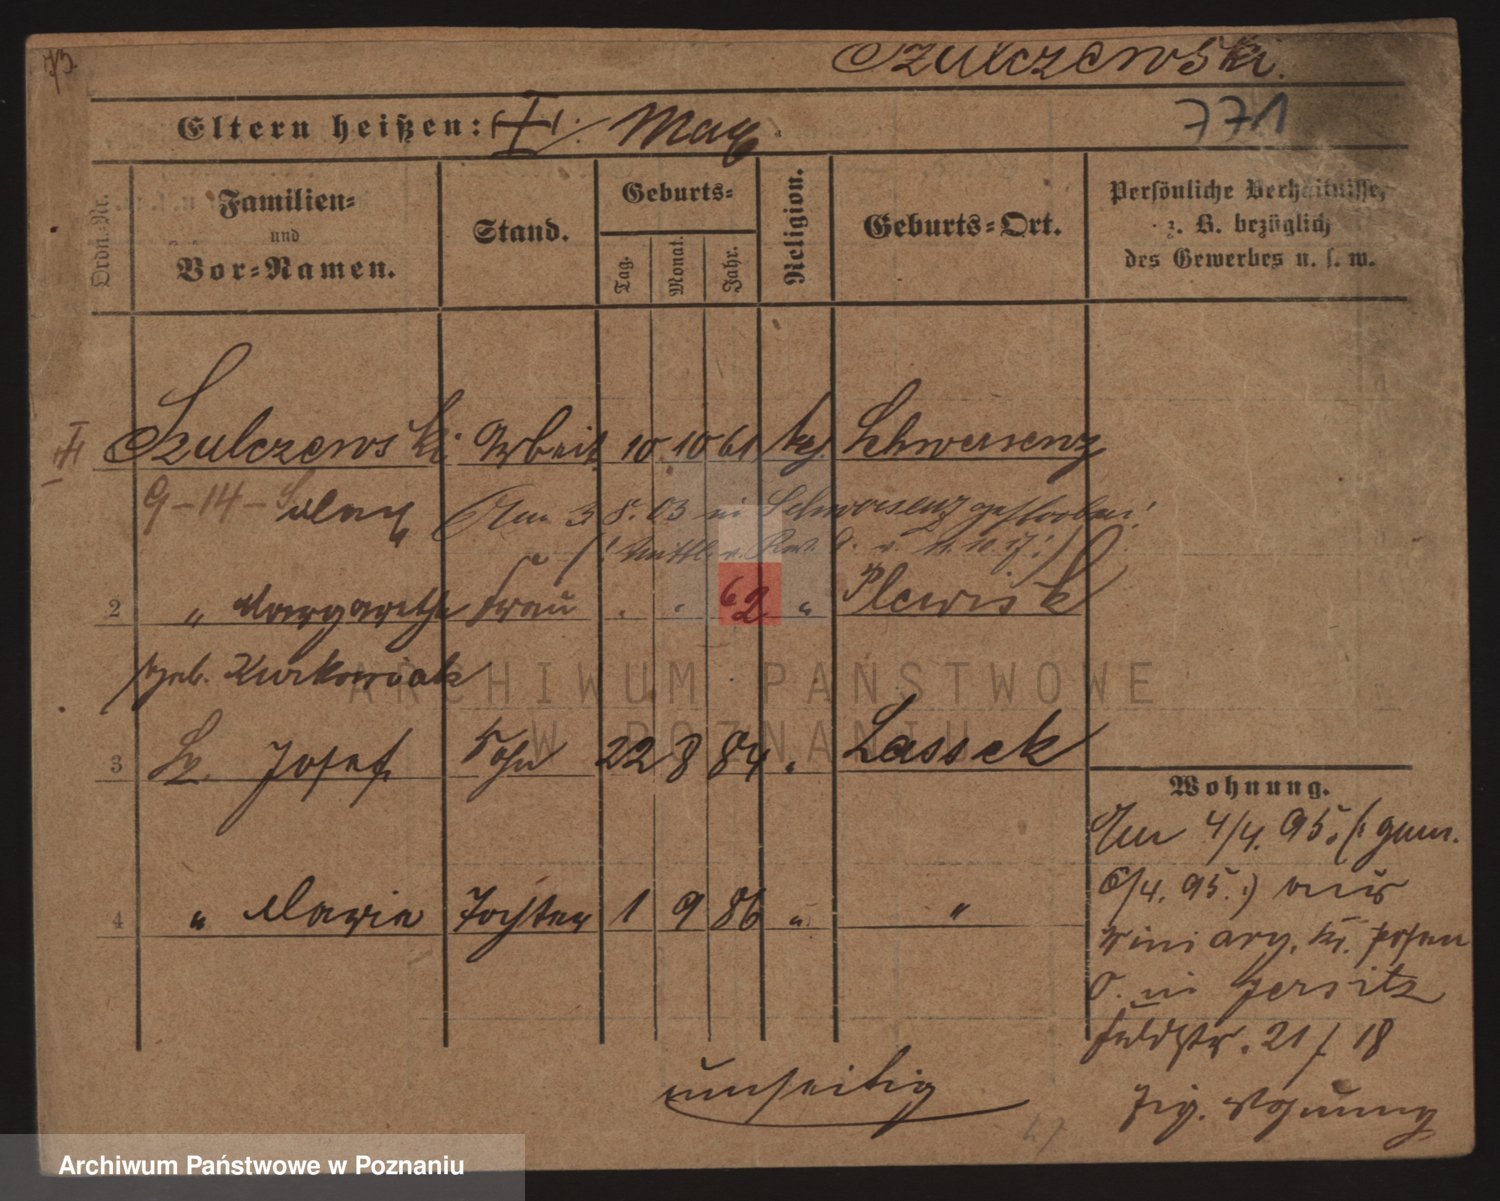 73
Szulczewski.
Eltern heißen: Max.
771
Ordn.-Nr.
Familien-
und
Vor-Namen.
Stand.
Geburts-
Tag.
Monat.
Jahr.
Religion.
Geburts-Ort.
Persönliche Verhältnisse,
z. B. bezüglich
des Gewerbes u. s. w.
Szulczewski Arbeit 10 10 61 kg Schwersenz
9-14- Max Am 3 8. 03 in Schwersenz gestorben!
2 " Margarethe Frau " " 62 " Plewisk
geb. Kurkowiak
3 Sz. Josef Sohn 22 8 84 " Lassek
4 " Marie Tochter 1 9 86 " "
Wohnung.
Am 4/4. 95. (: gem.
6/4. 95. :) aus
Winiary, Kr. Posen
in Jersitz
Feldstr. 21 / 18
Wohnung
umseitig
ARCHIWUM PAŃSTWOWE
W POZNANIU
Archiwum Państwowe w Poznaniu